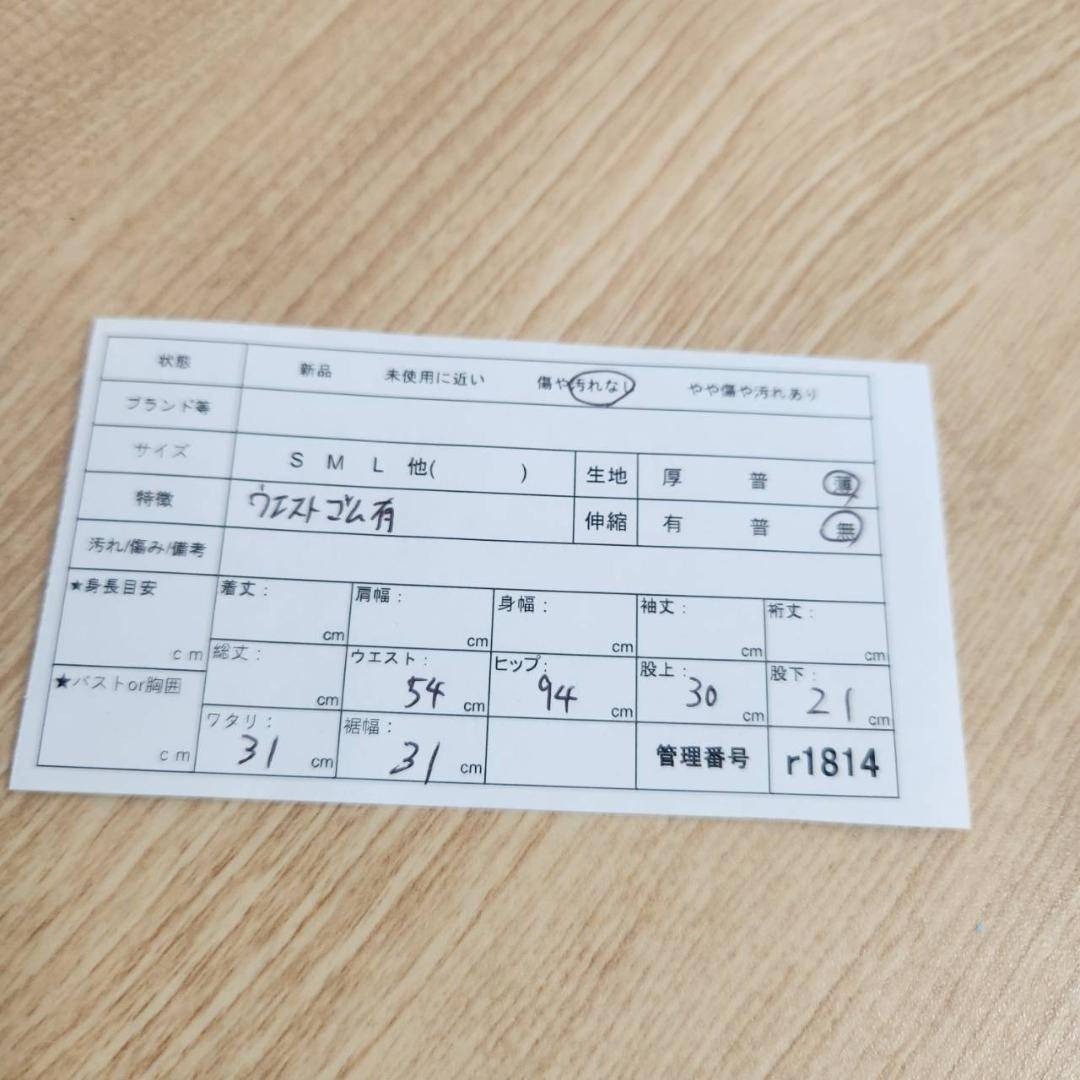 状態 新品 未使用に近い 傷や汚れなし やや傷や汚れあり
ブランド等
サイズ S M L 他( ) 生地 厚 普 薄
特徴 ウエストゴム有 伸縮 有 普 無
汚れ/傷み/備考
★身長目安 cm 着丈: cm 肩幅: cm 身幅: cm 袖丈: cm 裄丈: cm
総丈: cm ウエスト: 54 cm ヒップ: 94 cm 股上: 30 cm 股下: 21 cm
★バストor胸囲 cm ワタリ: 31 cm 裾幅: 31 cm 管理番号 r1814